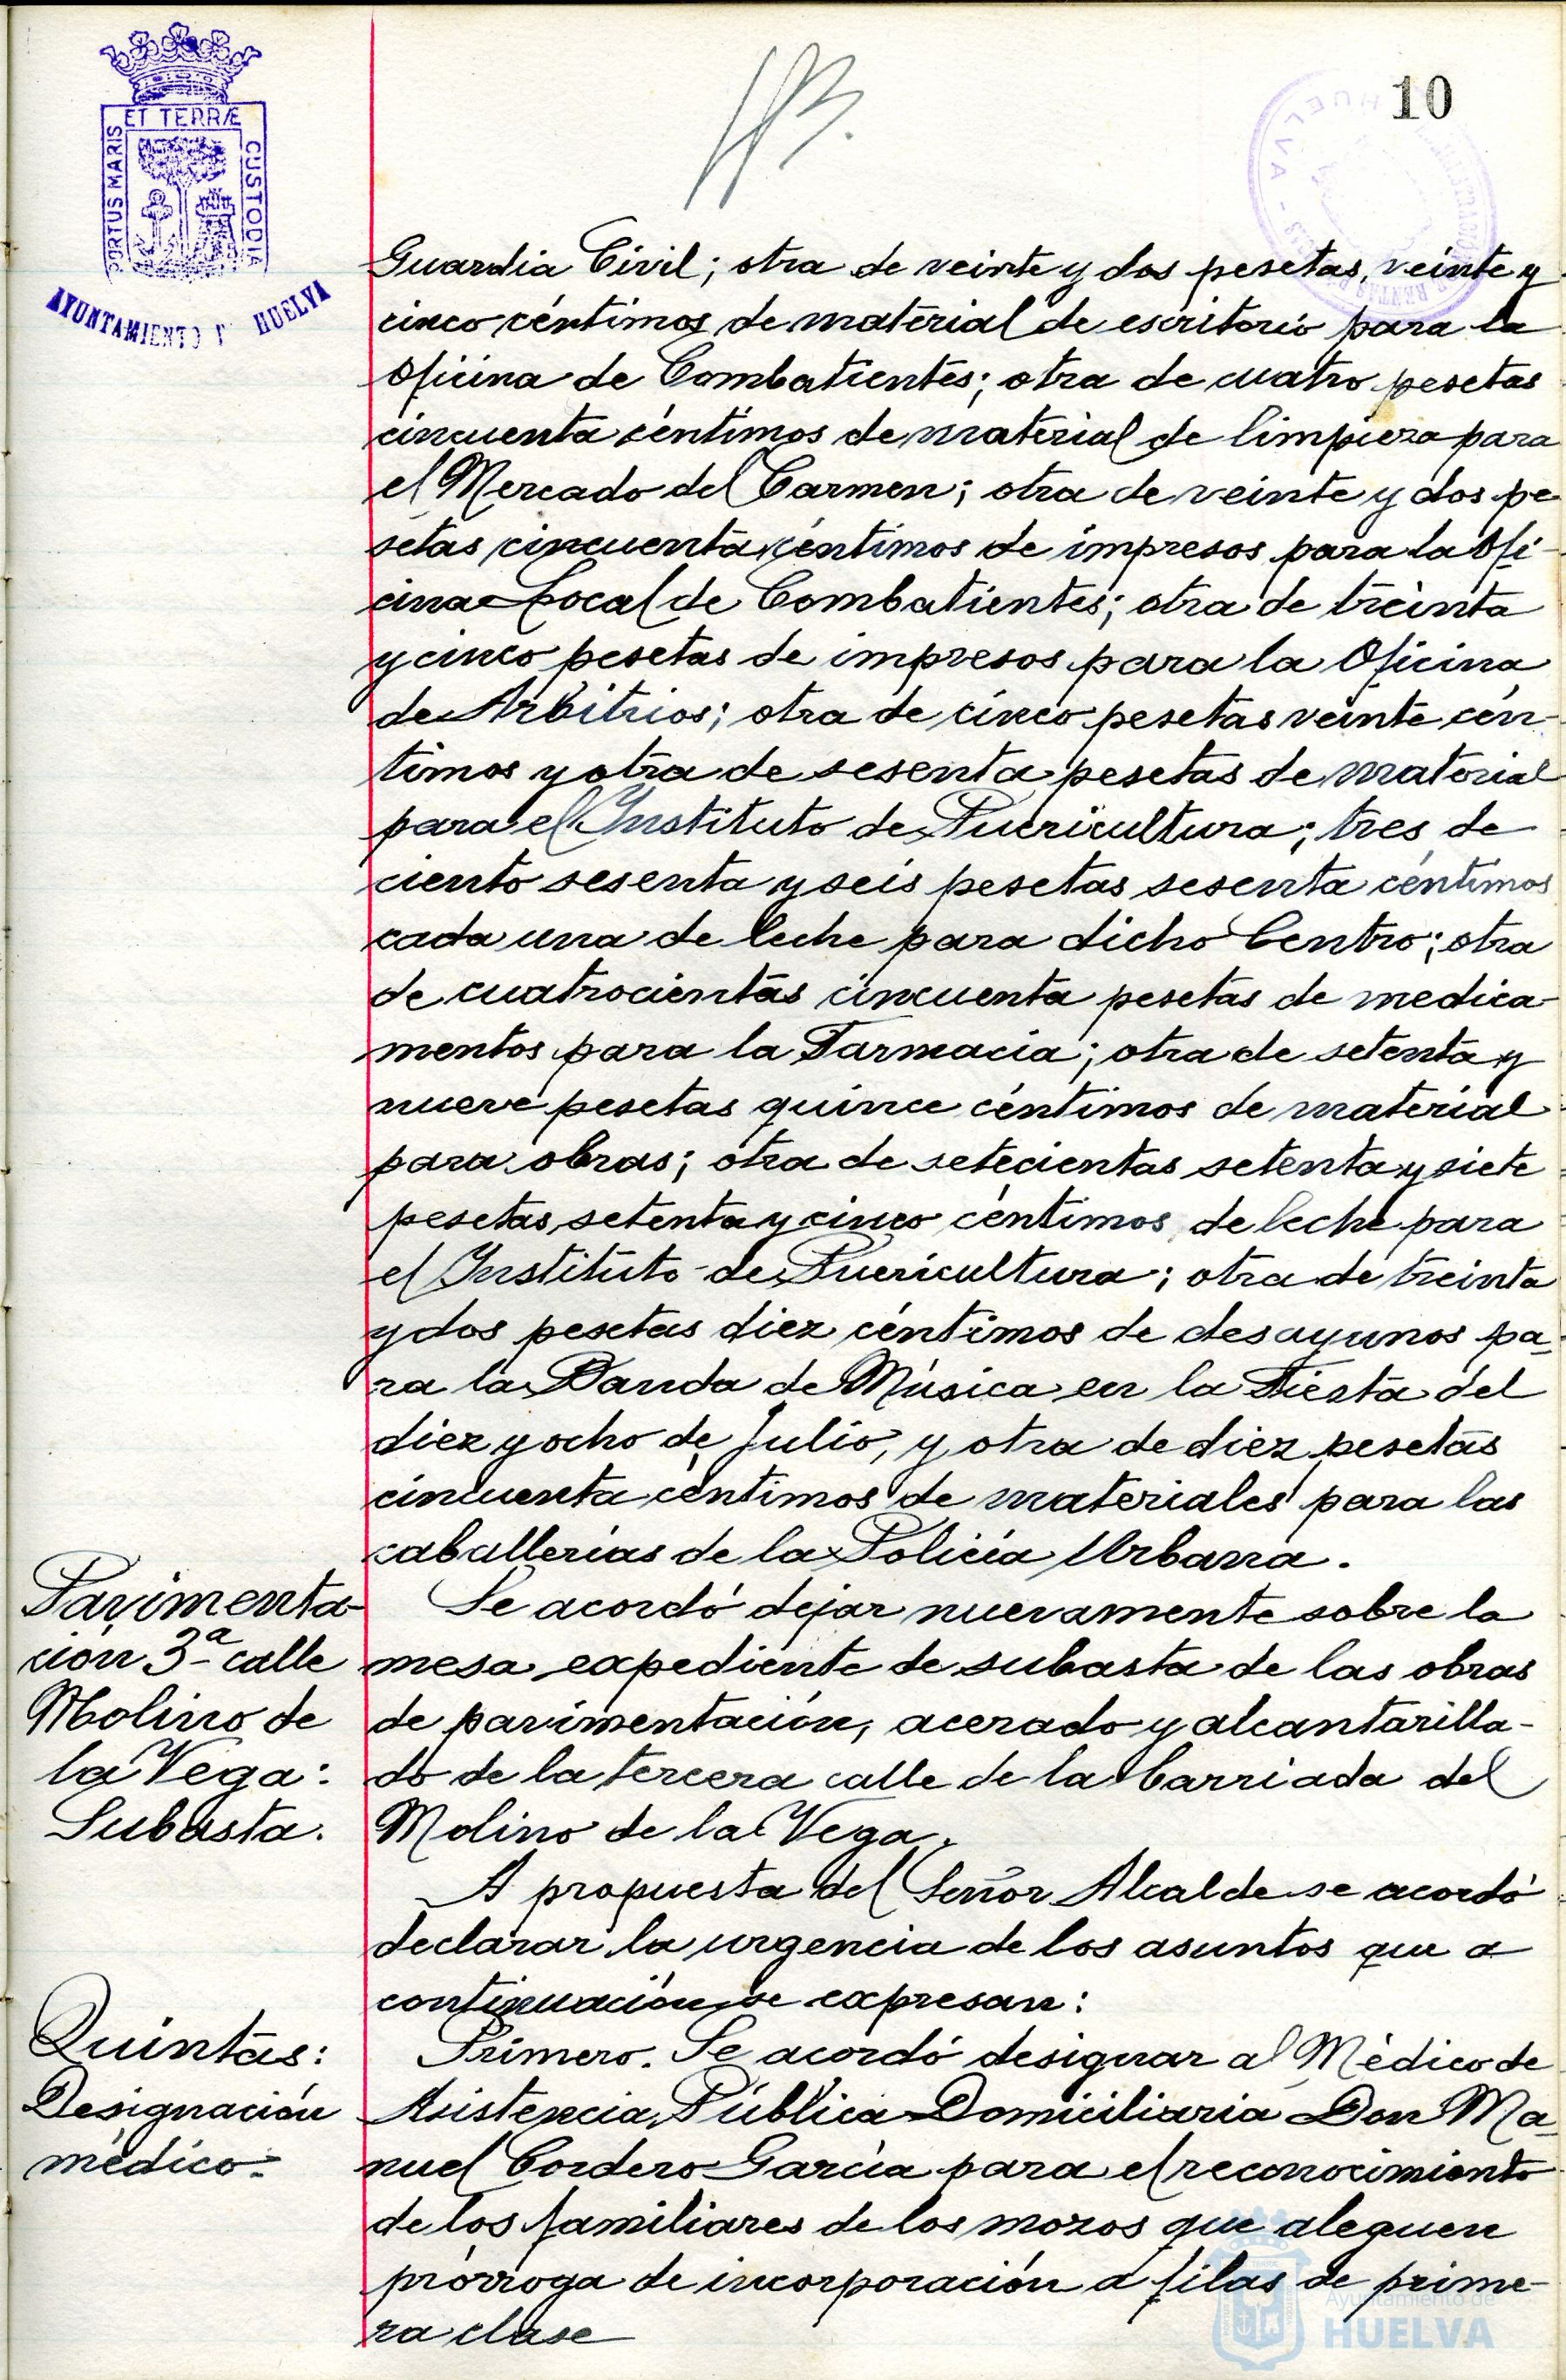 10
ET TERRÆ
PORTUS MARIS
CUSTODIA
AYUNTAMIENTO D HUELVA
HUELVA
Guardia Civil; otra de veinte y dos pesetas, veinte y
cinco céntimos de material de escritorio para la
Oficina de Combatientes; otra de cuatro pesetas
cincuenta céntimos de material de limpieza para
el Mercado del Carmen; otra de veinte y dos pe
setas cincuenta céntimos de impresos para la Ofi-
cina Local de Combatientes; otra de treinta
y cinco pesetas de impresos para la Oficina
de Arbitrios; otra de cinco pesetas veinte cén-
timos y otra de sesenta pesetas de material
para el Instituto de Puericultura; tres de
ciento sesenta y seis pesetas sesenta céntimos
cada una de leche para dicho Centro; otra
de cuatrocientas cincuenta pesetas de medica-
mentos para la Farmacia; otra de setenta y
nueve pesetas quince céntimos de material
para obras; otra de setecientas setenta y siete
pesetas setenta y cinco céntimos de leche para
el Instituto de Puericultura; otra de treinta
y dos pesetas diez céntimos de desayunos pa-
ra la Banda de Música en la Fiesta del
diez y ocho de Julio, y otra de diez pesetas
cincuenta céntimos de materiales para las
caballerías de la Policía Urbana.
Pavimenta-
ción 3ª calle
Molino de
la Vega:
Subasta.
Se acordó dejar nuevamente sobre la
mesa expediente de subasta de las obras
de pavimentación, acerado y alcantarilla-
do de la tercera calle de la barriada del
Molino de la Vega.
A propuesta del Señor Alcalde se acordó
declarar la urgencia de los asuntos que a
continuación se expresan:
Quintas:
Designación
médico.
Primero. Se acordó designar al Médico de
Asistencia Pública Domiciliaria Don Ma-
nuel Cordero García para el reconocimiento
de los familiares de los mozos que aleguen
prórroga de incorporación a filas de prime-
ra clase
Ayuntamiento de
HUELVA